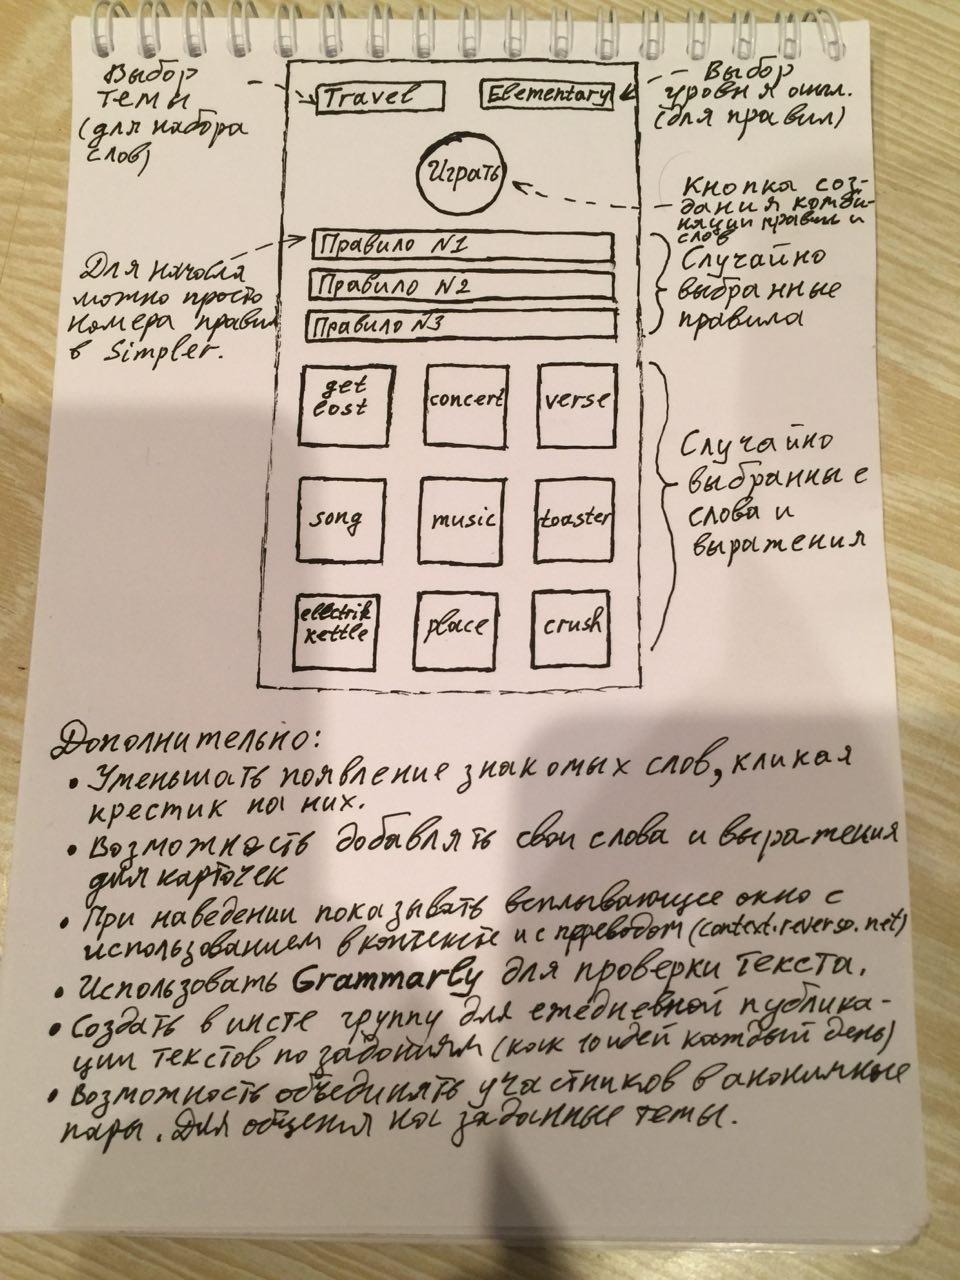 Выбор
темы
(для набора
слов)
Travel
Elementary
Выбор
уровня англ.
(для правил)
Играть
Кнопка соз-
дания комби-
нации правил и
слов
Для начала
можно просто
номера правил
в Simpler.
Правило №1
Правило №2
Правило №3
Случайно
выбранные
правила
get
lost
concert
verse
song
music
toaster
ellectrik
kettle
place
crush
Случайно
выбранные
слова и
выражения
Дополнительно:
• Уменьшать появление знакомых слов, кликая
крестик на них.
• Возможность добавлять свои слова и выражения
для карточек
• При наведении показывать всплывающее окно с
использованием в контексте и с переводом (context.reverso.net)
• Использовать Grammarly для проверки текста.
• Создать в инсте группу для ежедневной публика-
ции текстов по заданиям (как 10 идей каждый день)
• Возможность объединять участников в анонимные
пары. Для общения на заданные темы.